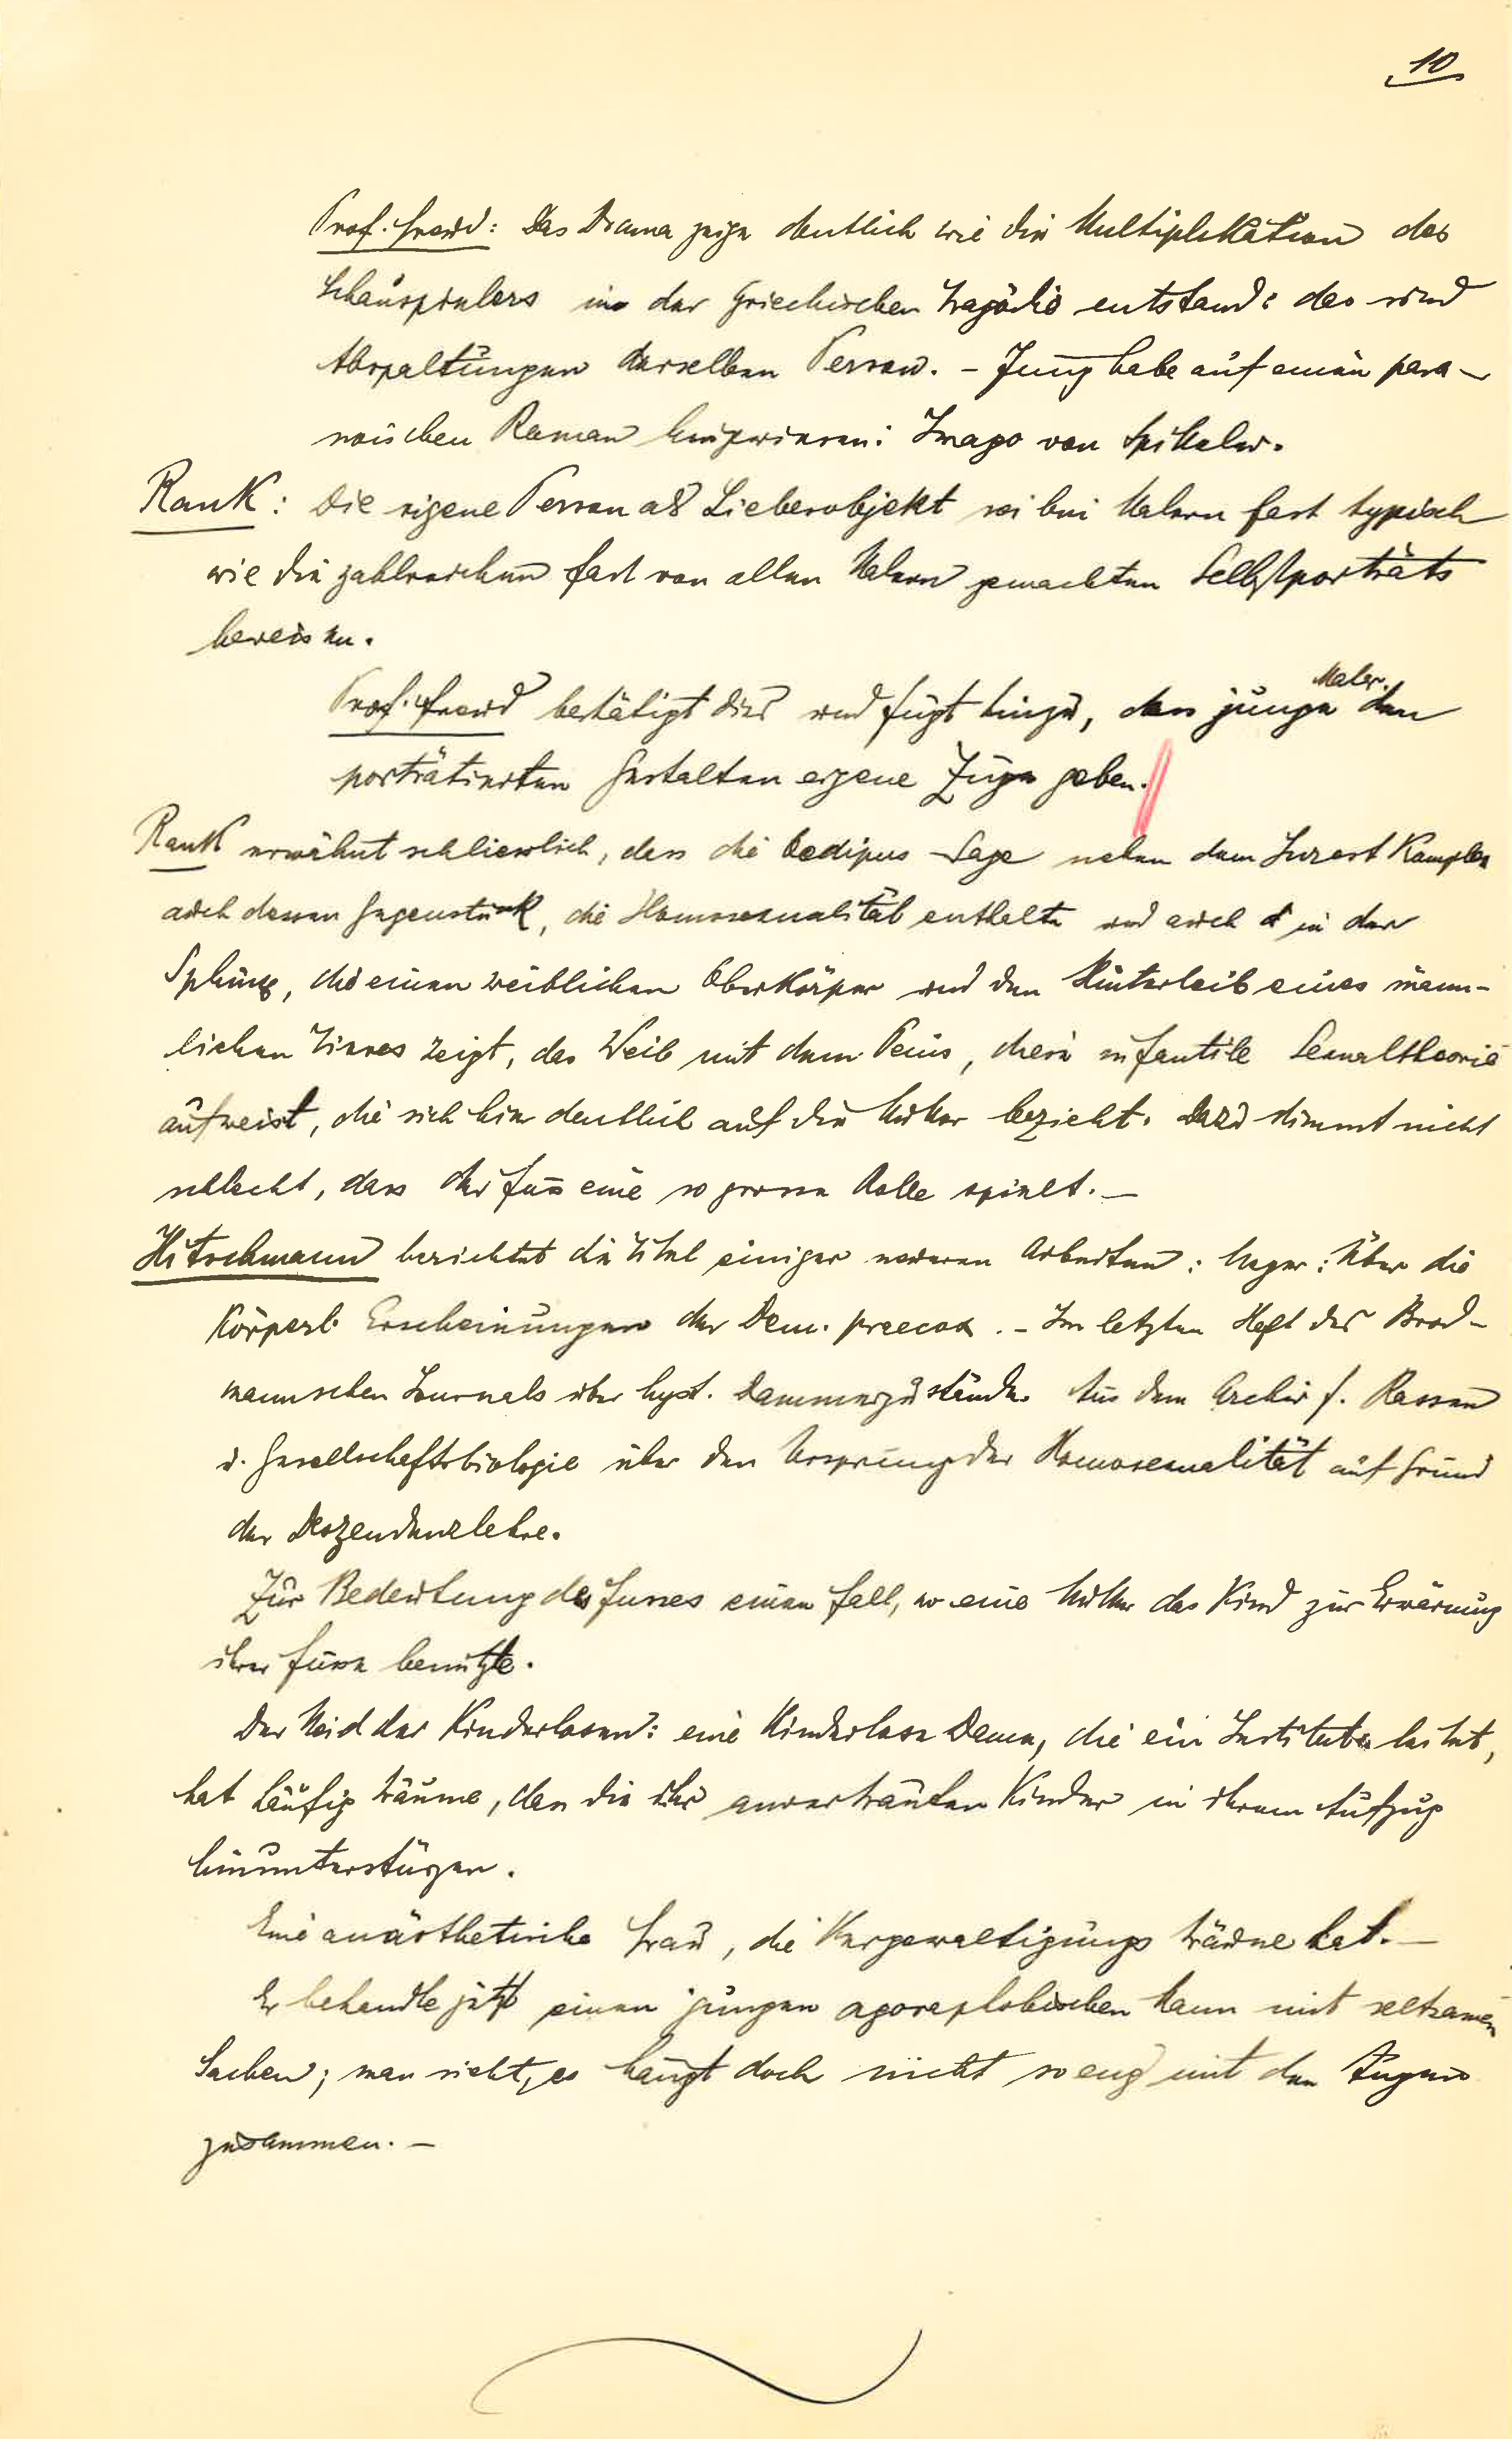 10
Prof. Freud: Das Drama zeige deutlich wie die Multiplikation des
Schauspielers in der griechischen Tragödie entstand: das sind
Abspaltungen derselben Person. – Jung habe auf einen para-
noischen Roman hingewiesen: Imago von Spitteler.
Rank: Die eigene Person als Liebesobjekt sei bei Malern fast typisch
wie die zahlreichen fast von allen Malern gemachten Selbstporträts
beweisen.
Prof. Freud bestätigt dies und fügt hinzu, dass junge Maler den
porträtierten Gestalten eigene Züge geben.
Rank erwähnt schliesslich, dass die Oedipus-Sage neben dem Inzest Komplex
auch dessen Gegenstück, die Homosexualität enthalte und auch in der
Sphinx, die einen weiblichen Oberkörper und den Hinterleib eines männ-
lichen Tieres zeigt, das Weib mit dem Penis, die infantile Sexualtheorie
aufweist, die sich hier deutlich auf die Mutter bezieht. Dazu stimmt nicht
schlecht, dass der Fuss eine so grosse Rolle spielt. –
Hitschmann berichtet die Titel einiger neueren Arbeiten: Meyer: Über die
körperl. Erscheinungen der Dem. praecox. – Im letzten Heft des Brod-
mannschen Journals über hyst. Dämmerzustände. Aus dem Archiv f. Rassen
u. Gesellschaftsbiologie über den Ursprung der Homosexualität auf Grund
der Deszendenzlehre.
Zur Bedeutung des Fusses einen Fall, wo eine Mutter das Kind zur Erwärmung
ihrer Füsse benützte.
Der Neid der Kinderlosen: eine kinderlose Dame, die ein Institut leitet,
hat häufig Träume, dass die ihr anvertrauten Kinder in ihrem Aufzug
hinunterstürzen.
Eine anästhetische Frau, die Vergewaltigungs träume hat. –
Er behandle jetzt einen jungen agoraphobischen Mann mit seltsamen
Sachen; man sieht, es hängt doch nicht so eng mit den Augen
zusammen. –